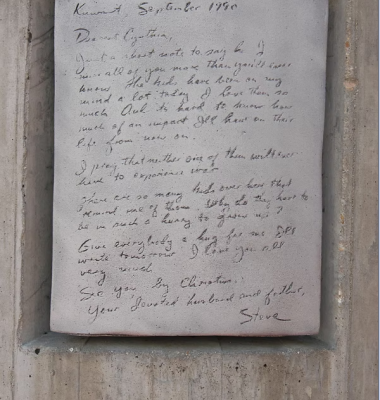 Kuwait, September 1990
Dearest Cynthia,
Just a short note to say hi. I
miss all of you more than you'll ever
know. The kids have been on my
mind a lot today. I love them so
much. And it's hard to know how
much of an impact I'll have on their
life from now on.
I pray that neither one of them will ever
have to experience war.
There are so many kids over here that
remind me of them. Why do they have to
be in such a hurry to grow up?
Give everybody a hug for me. I'll
write tomorrow. I love you all
very much.
See you by Christmas.
Your devoted husband and father,
Steve